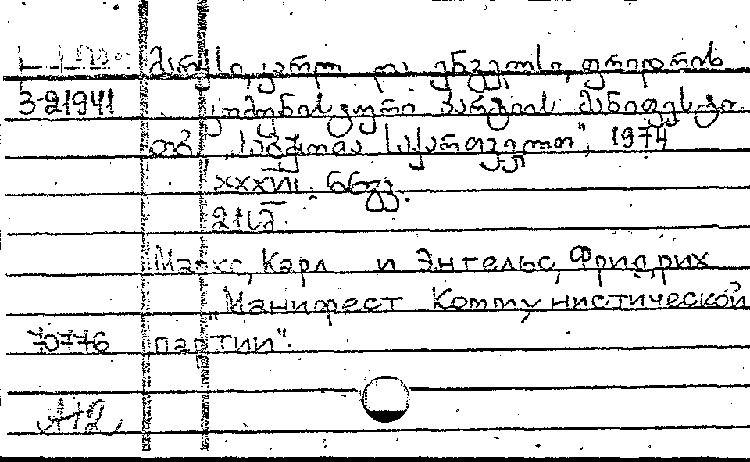 მარქსი, კარლ და ენგელსი, ფრიდრიხ
3-21941 კომუნისტური პარტიის მანიფესტი.
თბ. „საბჭოთა საქართველო", 1974
XXXVII. 66გვ.
21სმ.
Маркс, Карл и Энгельс, Фридрих
„Манифест Коммунистической
70776 партии".